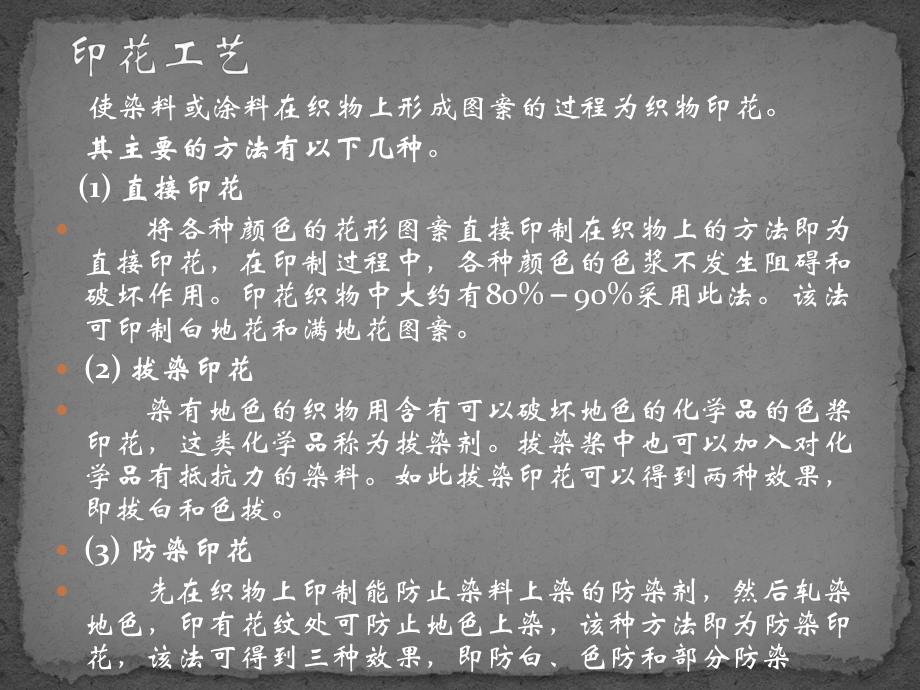 印花工艺
使染料或涂料在织物上形成图案的过程为织物印花。
其主要的方法有以下几种。
(1) 直接印花
将各种颜色的花形图案直接印制在织物上的方法即为
直接印花，在印制过程中，各种颜色的色浆不发生阻碍和
破坏作用。印花织物中大约有80%－90%采用此法。 该法
可印制白地花和满地花图案。
(2) 拔染印花
染有地色的织物用含有可以破坏地色的化学品的色桨
印花，这类化学品称为拔染剂。拔染桨中也可以加入对化
学品有抵抗力的染料。如此拔染印花可以得到两种效果，
即拔白和色拔。
(3) 防染印花
先在织物上印制能防止染料上染的防染剂，然后轧染
地色，印有花纹处可防止地色上染，该种方法即为防染印
花，该法可得到三种效果，即防白、色防和部分防染